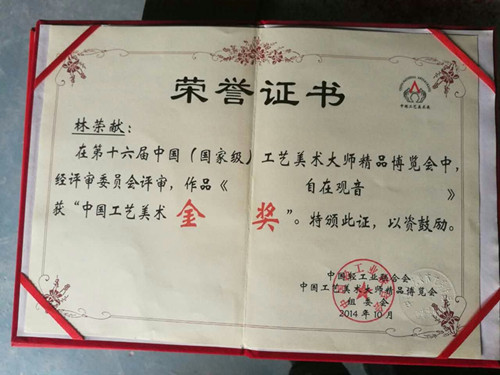 荣誉证书
林荣献：
在第十六届中国（国家级）工艺美术大师精品博览会中，
经评审委员会评审，作品《 自在观音 》
获“中国工艺美术 金奖 ”。特颁此证，以资鼓励。
中国轻工业联合会
中国工艺美术大师精品博览会
组委会
2014年10月